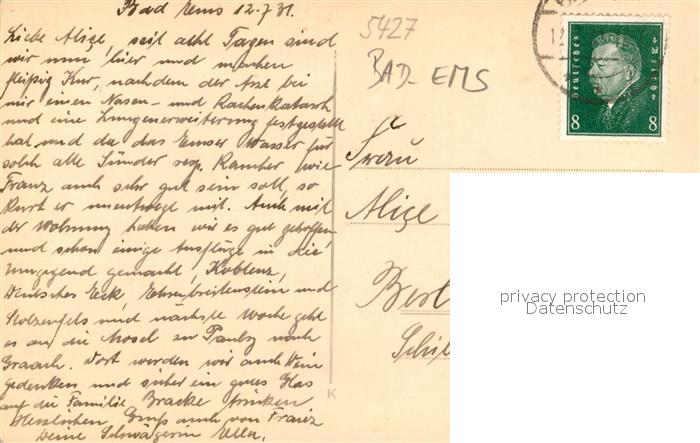 Bad Ems 12.7.31.
Liebe Alice, seit acht Tagen sind
wir nun hier und machen
fleißig Kur, nachdem der Arzt bei
mir einen Nasen- und Rachenkatarrh
und eine Lungenerweiterung festgestellt
hat und da das Emser Wasser für
solch alte Sünder resp. Raucher wie
Franz auch sehr gut sein soll, so
kurt er unentwegt mit. Auch mit
der Wohnung haben wir es gut getroffen
und schon einige Ausflüge in die
Umgegend gemacht, Koblenz,
Deutsches Eck, Ehrenbreitenstein und
Stolzenfels und nächste Woche geht
es an die Mosel zu Pauly nach
Graach. Dort werden wir auch Dein
gedenken und sicher ein gutes Glas
auf die Familie Bracke trinken
Herzlichen Gruß auch von Franz
Deine Schwägerin Ella.
5427
BAD-EMS
12.
Deutsches Reich
8 8
Frau
Alice
Berl
Schil
K
privacy protection
Datenschutz